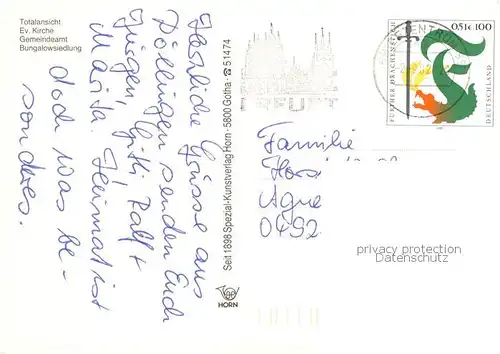 Totalansicht
Ev. Kirche
Gemeindeamt
Bungalowsiedlung
Herzliche Grüsse aus
Döllingen senden Euch
Jürgen, Gitti Ralf +
Marita. Heimat ist
doch was be-
sonderes.
Seit 1898 Spezial-Kunstverlag Horn · 5800 Gotha · ☎ 51474
HORN
FURTHER DRACHENSTICH
0,51€ 100
DEUTSCHLAND
ZENTRUM
Familie
Horst
Agne
0492
privacy protection
Datenschutz